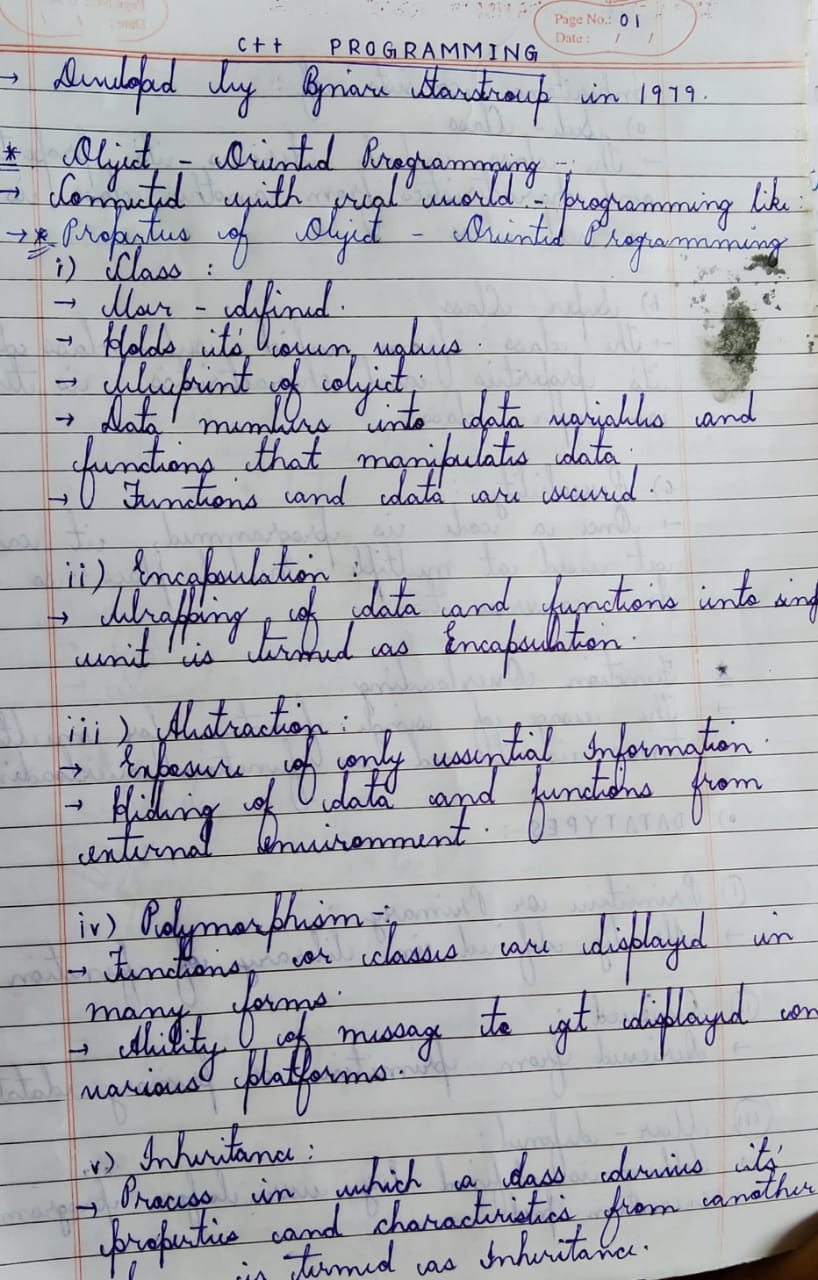 Page No.: 01
Date : / /
C++ PROGRAMMING
→ Developed by Bjnare Starstroup in 1979.
* Object - Oriented Programming -:
→ Connected with real world - programming like :
→ * Properties of Object - Oriented Programming
i) Class :
→ User - defined.
→ Holds it's own values.
→ Blueprint of object.
→ Data members into data variables and
functions that manipulates data.
→ Functions and data are secured.
ii) Encapsulation :
→ Wrapping of data and functions into sing
unit is termed as Encapsulation.
iii) Abstraction :
→ Exposure of only essential Information.
→ Hiding of data and functions from
external Environment.
iv) Polymorphism -:
→ Functions or classes are displayed in
many forms.
→ Ability of message to get displayed on
various platforms.
v) Inheritance :
→ Process in which a class derives its'
properties and characteristics from another
is termed as Inheritance.